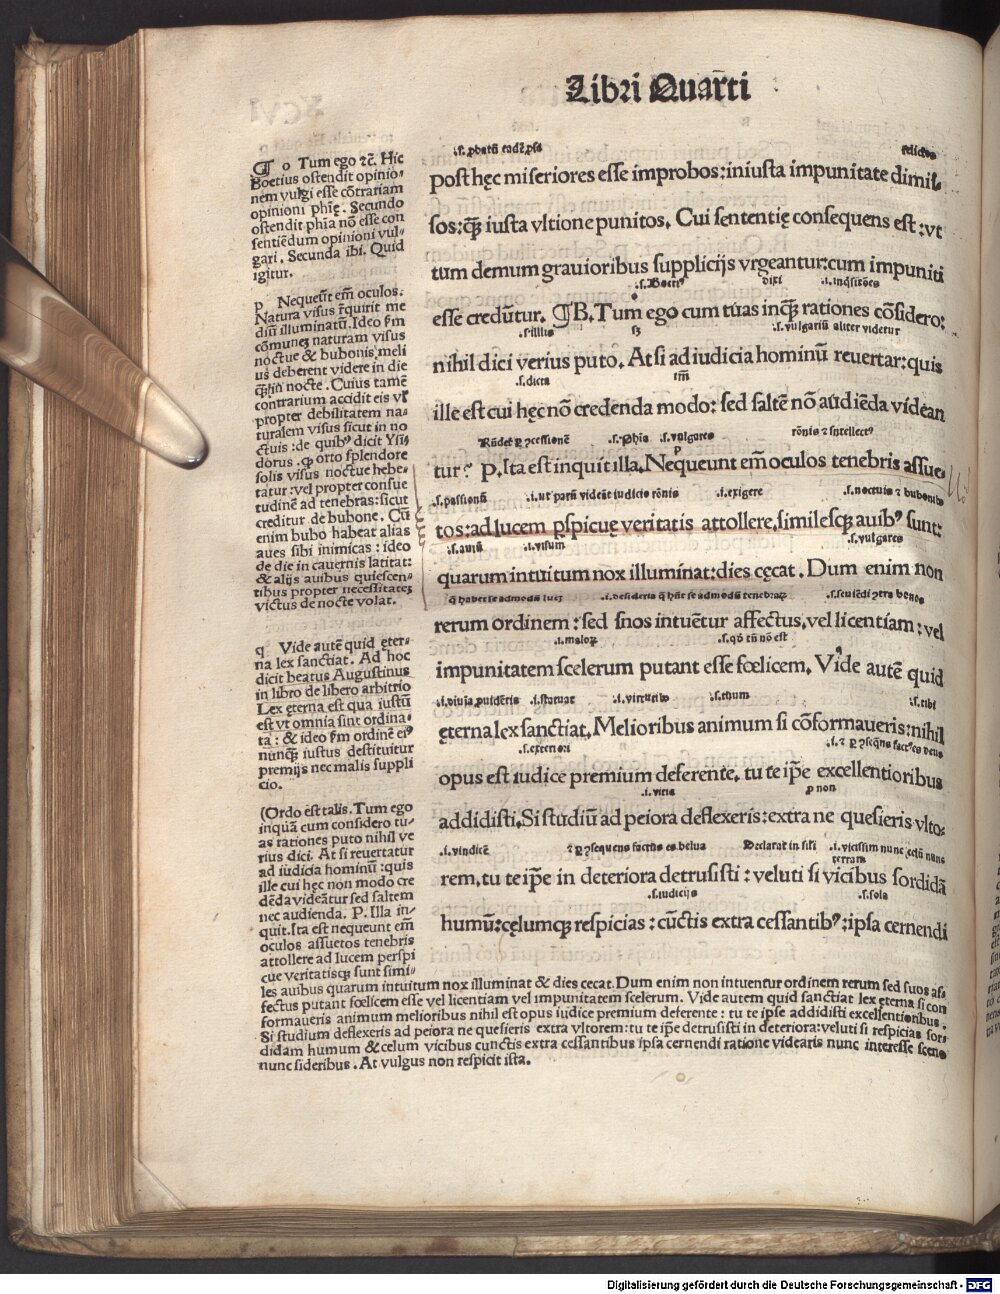 Libri Quarti
¶ o Tum ego ⁊c̄. Hic
Boetius ostendit opinio-
nem vulgi esse cōtrariam
opinioni phīę. Secundo
ostendit phīa nō esse con
sentiēdum opinioni vul-
gari. Secunda ibi. Quid
igitur.
p Nequeūt em̄ oculos.
Natura visus r̄quirit me
diū illuminatū. Ideo ẜm
cōmunē naturam visus
noctue & bubonis meli
us deberent videre in die
q̄ꝫ in nocte. Cuius tamē
contrarium accidit eis vl̓
propter debilitatem na-
turalem visus sicut in no
ctuis: de quibꝰ dicit Ysi-
dorus. ꝙ orto splendore
solis visus noctue hebe-
tatur: vel propter consue
tudinē ad tenebras: sicut
creditur de bubone. Cū
enim bubo habeat alias
aues sibi inimicas: ideo
de die in cauernis latitat:
& alijs auibus quiescen-
tibus propter necessitatez
victus de nocte volat.
q Vide autē quid ęter-
na lex sanctiat. Ad hoc
dicit beatus Augustinus
in libro de libero arbitrio
Lex ęterna est qua iustū
est vt omnia sint ordina-
ta: & ideo ẜm ordinē eiꝰ
nunq̄ꝫ iustus destituitur
premijs nec malis suppli
cio.
(Ordo est talis. Tum ego
inquā cum considero tu-
as rationes puto nihil ve
rius dici. At si reuertatur
ad iudicia hominū: quis
ille cui hęc non modo cre
dēda videātur sed saltem
nec audienda. P. Illa in-
quit. Ita est nequeunt em̄
oculos assuetos tenebris
attollere ad lucem perspi
cue veritatisqꝫ sunt simi-
les auibus quarum intuitum nox illuminat & dies cecat. Dum enim non intuentur ordinem rerum sed suos af-
fectus putant fœlicem esse vel licentiam vel impunitatem scelerum. Vide autem quid sanctiat lex ęterna si con
formaueris animum melioribus nihil est opus iudice premium deferente: tu te ipse addidisti excellentioribus.
Si studium deflexeris ad peiora ne quesieris extra vltorem: tu te ipē detrusisti in deteriora: veluti si respicias sor-
didam humum & celum vicibus cunctis extra cessantibus ipsa cernendi ratione videaris nunc interesse sceno
nunc sideribus. At vulgus non respicit ista.
post hęc miseriores esse improbos: iniusta impunitate dimis-
sos: q̄ꝫ iusta vltione punitos. Cui sententię consequens est: vt
tum demum grauioribus supplicijs vrgeantur: cum impuniti
.s. Boeti⁹ dixi .i. inq̄sitōes
esse credūtur. ¶ B. Tum ego cum tuas inq̄ꝫ rationes cōsidero:
.s. vulgariū aliter videtur
nihil dici verius puto. At si ad iudicia hominū reuertar: quis
.s. dicta
ille est cui hęc nō credenda modo: sed saltē nō audiēda videan
.s. Phīa .s. vulgares rōnis ⁊ intellectꝰ
tur? P. Ita est inquit illa. Nequeunt em̄ oculos tenebris assue-
.s. passionū .i. exigere .s. noctuis ⁊ bubonibꝰ
tos: ad lucem pspicuę veritatis attollere, similesqꝫ auibꝰ sunt:
.s. auiū .i. visum .s. vulgares
quarum intuitum nox illuminat: dies cęcat. Dum enim non
rerum ordinem: sed suos intuētur affectus, vel licentiam: vel
.i. maloꝝ
impunitatem scelerum putant esse fœlicem. Vide autē quid
.i. statuat .i. virtutibꝰ .s. tuum .s. tibi
ęterna lex sanctiat. Melioribus animum si cōformaueris: nihil
.s. exteriori
opus est iudice premium deferente. tu te ipē excellentioribus
.i. vitia
addidisti. Si studiū ad peiora deflexeris: extra ne quesieris vlto-
.i. vindicē Declarat in sili .i. vicissim nunc celū nunc
terram
rem. tu te ipē in deteriora detrusisti: veluti si vicibus sordidā
.s. iudicijs .s. sola
humū: cęlumqꝫ respicias: cūctis extra cessantibꝰ: ipsa cernendi
Digitalisierung gefördert durch die Deutsche Forschungsgemeinschaft - DFG